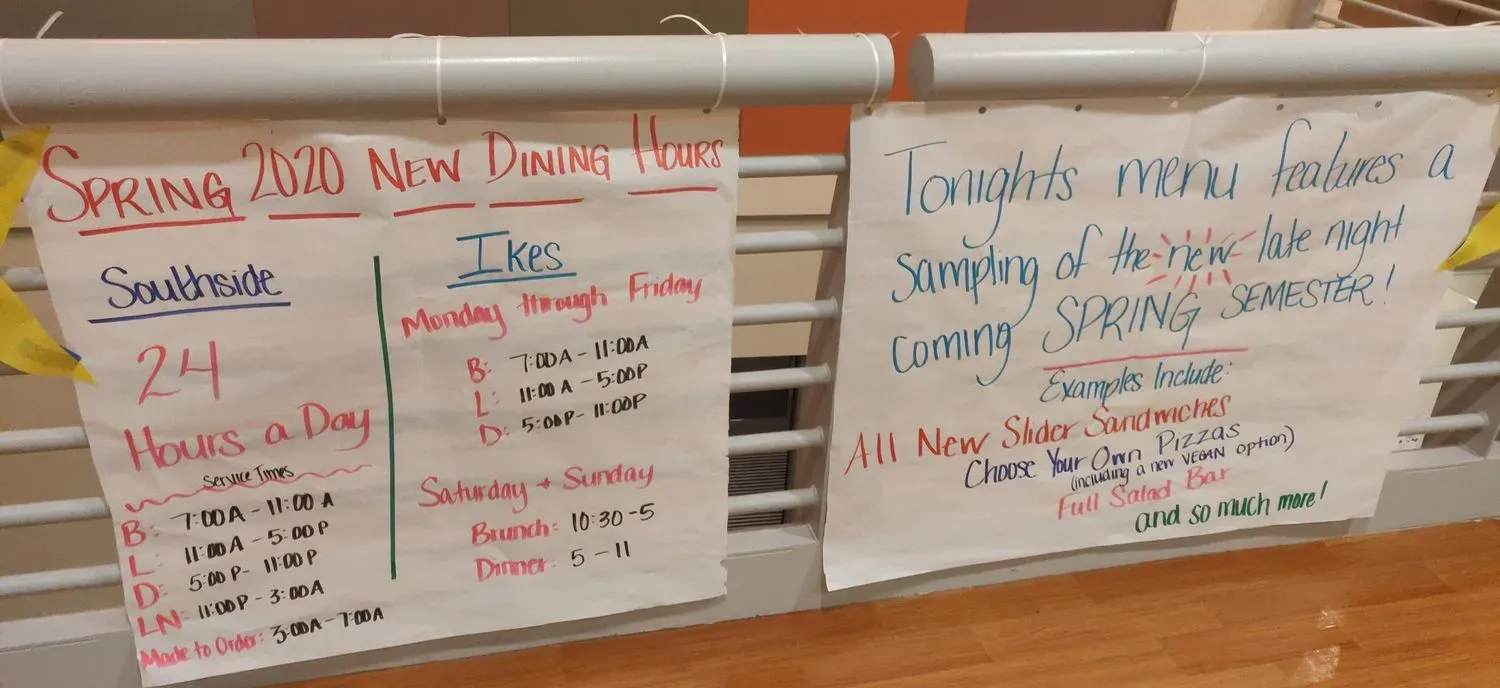 SPRING 2020 NEW DINING HOURS
Southside
24
Hours a Day
Service Times
B: 7:00A - 11:00A
L: 11:00A - 5:00P
D: 5:00P - 11:00P
LN: 11:00P - 3:00A
Made to Order: 3:00A - 7:00A
IKes
Monday through Friday
B: 7:00A - 11:00A
L: 11:00A - 5:00P
D: 5:00P - 11:00P
Saturday + Sunday
Brunch: 10:30-5
Dinner: 5 - 11
Tonights menu features a
sampling of the new late night
coming SPRING SEMESTER!
Examples Include:
All New Slider Sandwiches
Choose Your Own Pizzas
(including a new VEGAN option)
Full Salad Bar
and so much more!